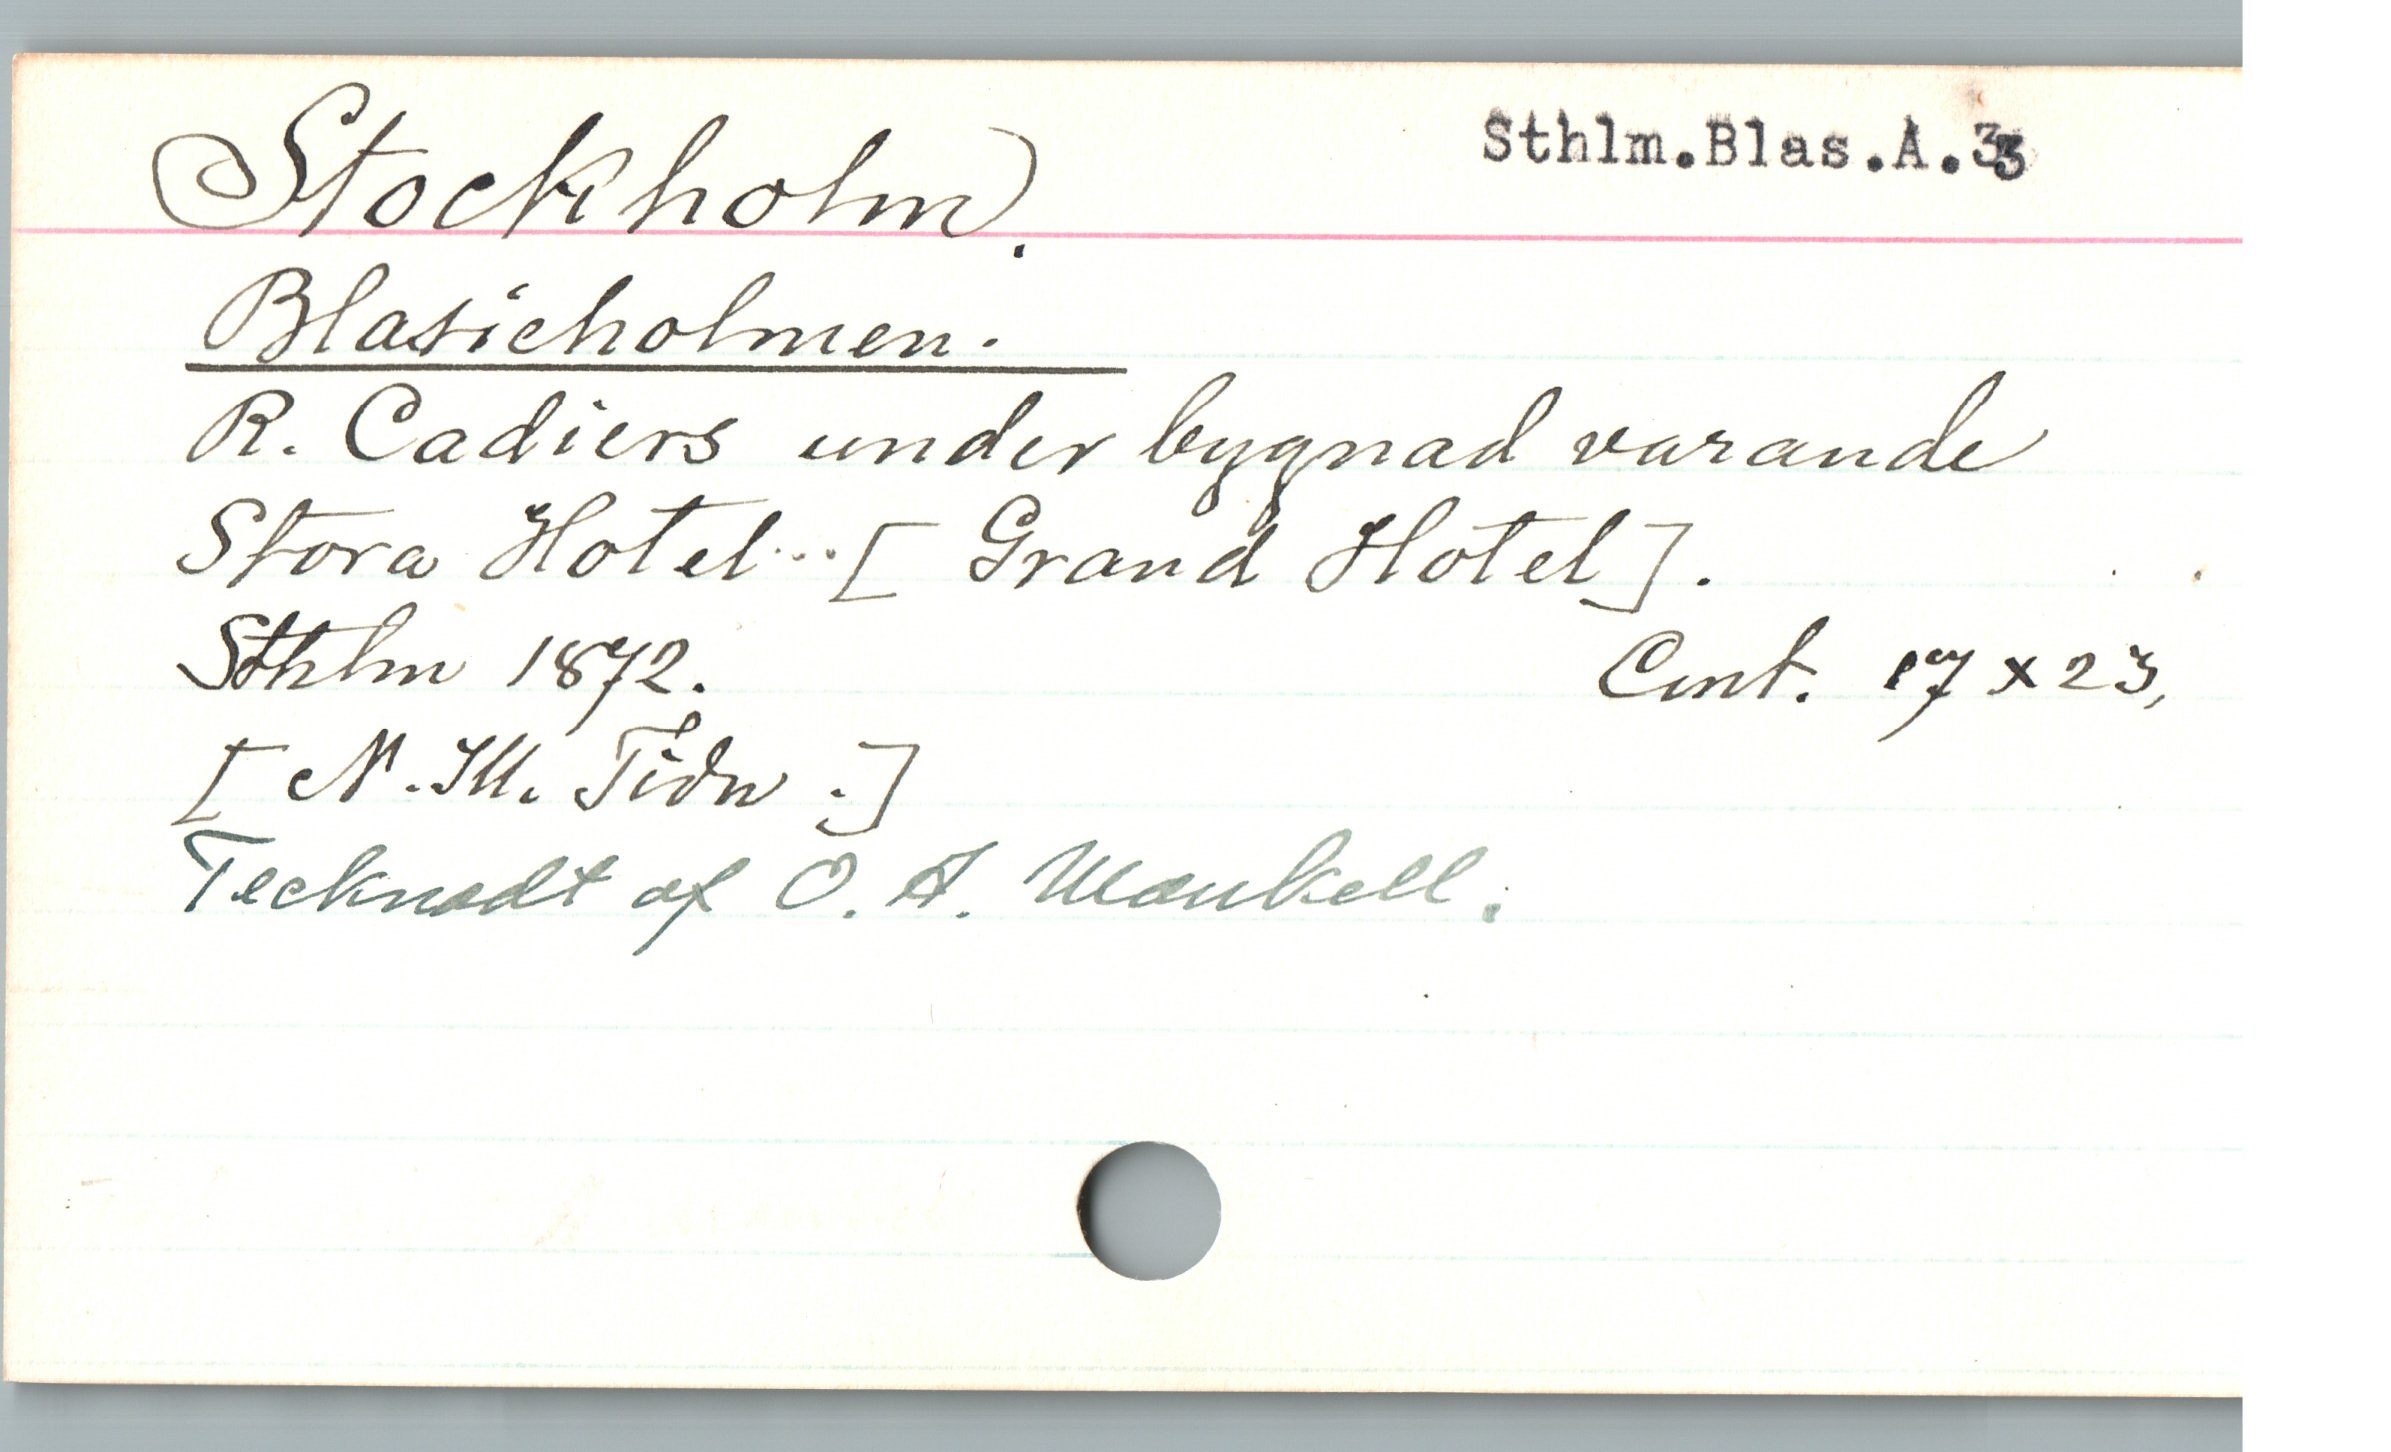 Stockholm.
Sthlm.Blas.A.33
Blasieholmen.
R. Cadiers under bygnad varande
Stora Hotel... [Grand Hotel].
Sthlm 1872.
Cent. 17 x 23,
[N. Ill. Tidn.]
Tecknadt af O. A. Mankell.